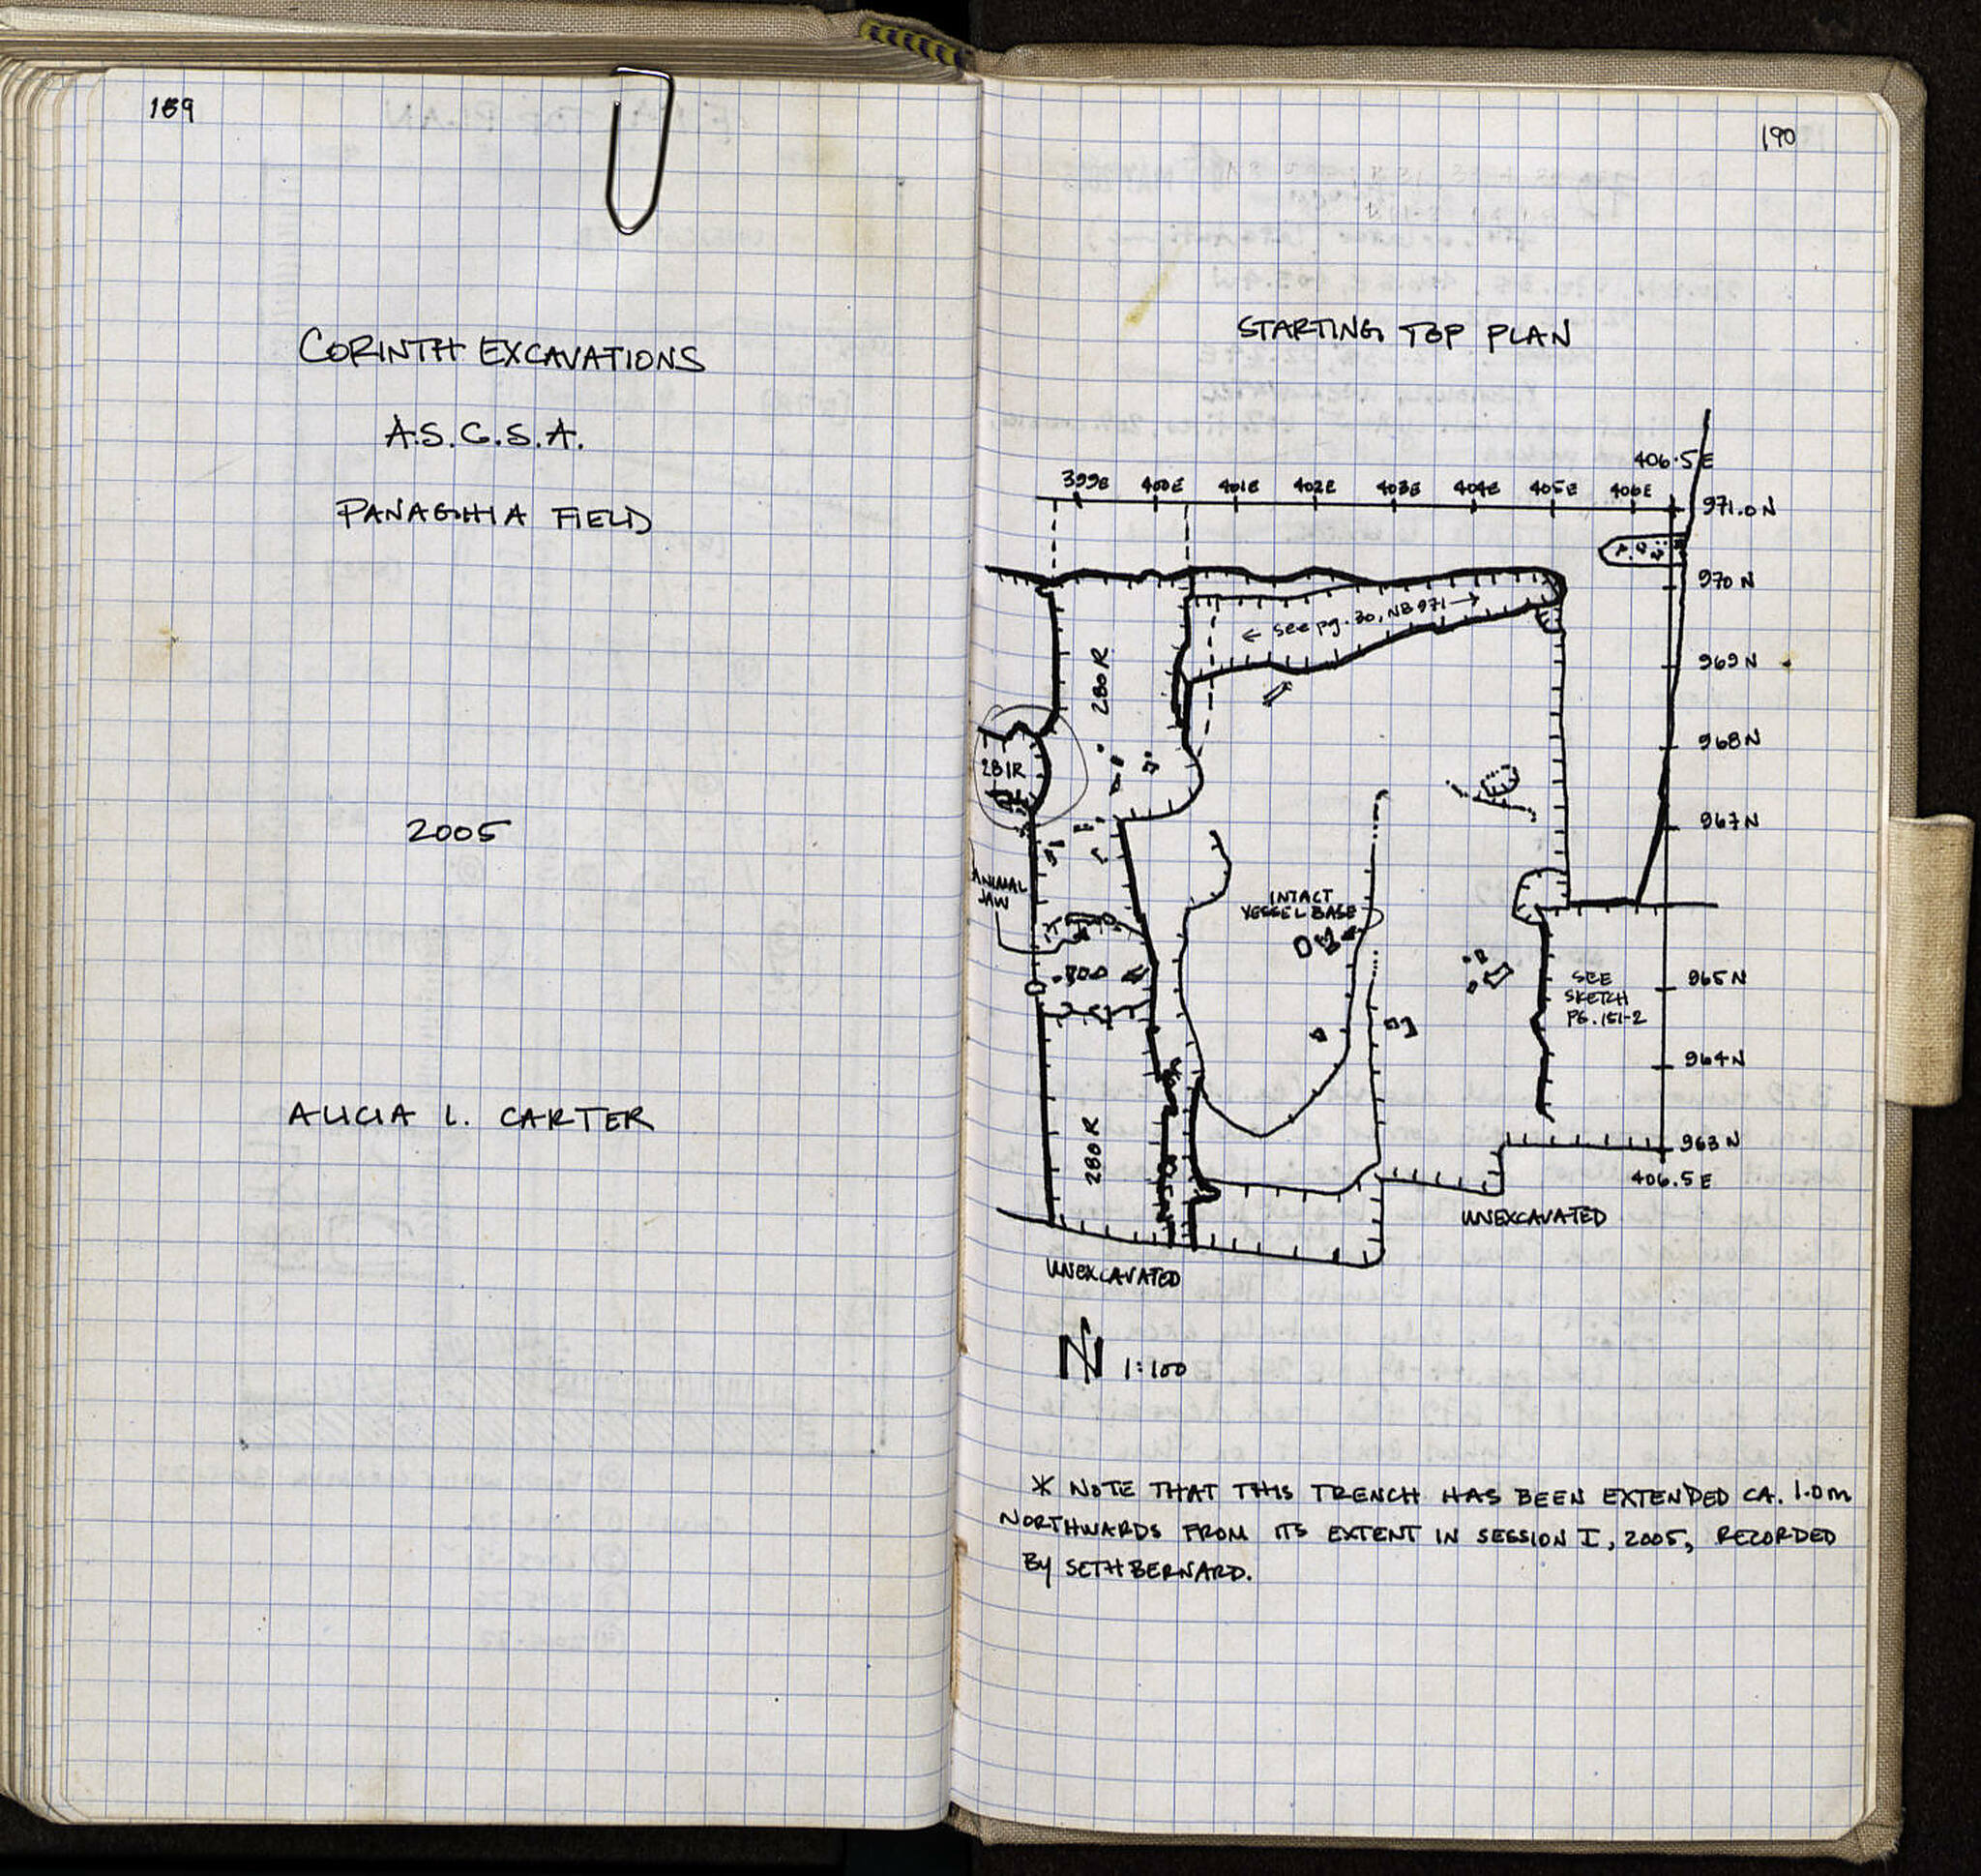 189
CORINTH EXCAVATIONS
A.S.C.S.A.
PANAGHIA FIELD
2005
ALICIA L. CARTER
190
STARTING TOP PLAN
406.5E
399E 400E 401E 402E 403E 404E 405E 406E
971.0N
970N
← see pg. 30, NB 971 →
969N
280R
968N
281R
967N
ANIMAL
JAW
INTACT
VESSEL BASE
965N
SEE
SKETCH
PG. 151-2
964N
280R
963N
406.5E
UNEXCAVATED
UNEXCAVATED
N 1:100
* NOTE THAT THIS TRENCH HAS BEEN EXTENDED CA. 1.0m
NORTHWARDS FROM ITS EXTENT IN SESSION I, 2005, RECORDED
BY SETH BERNARD.